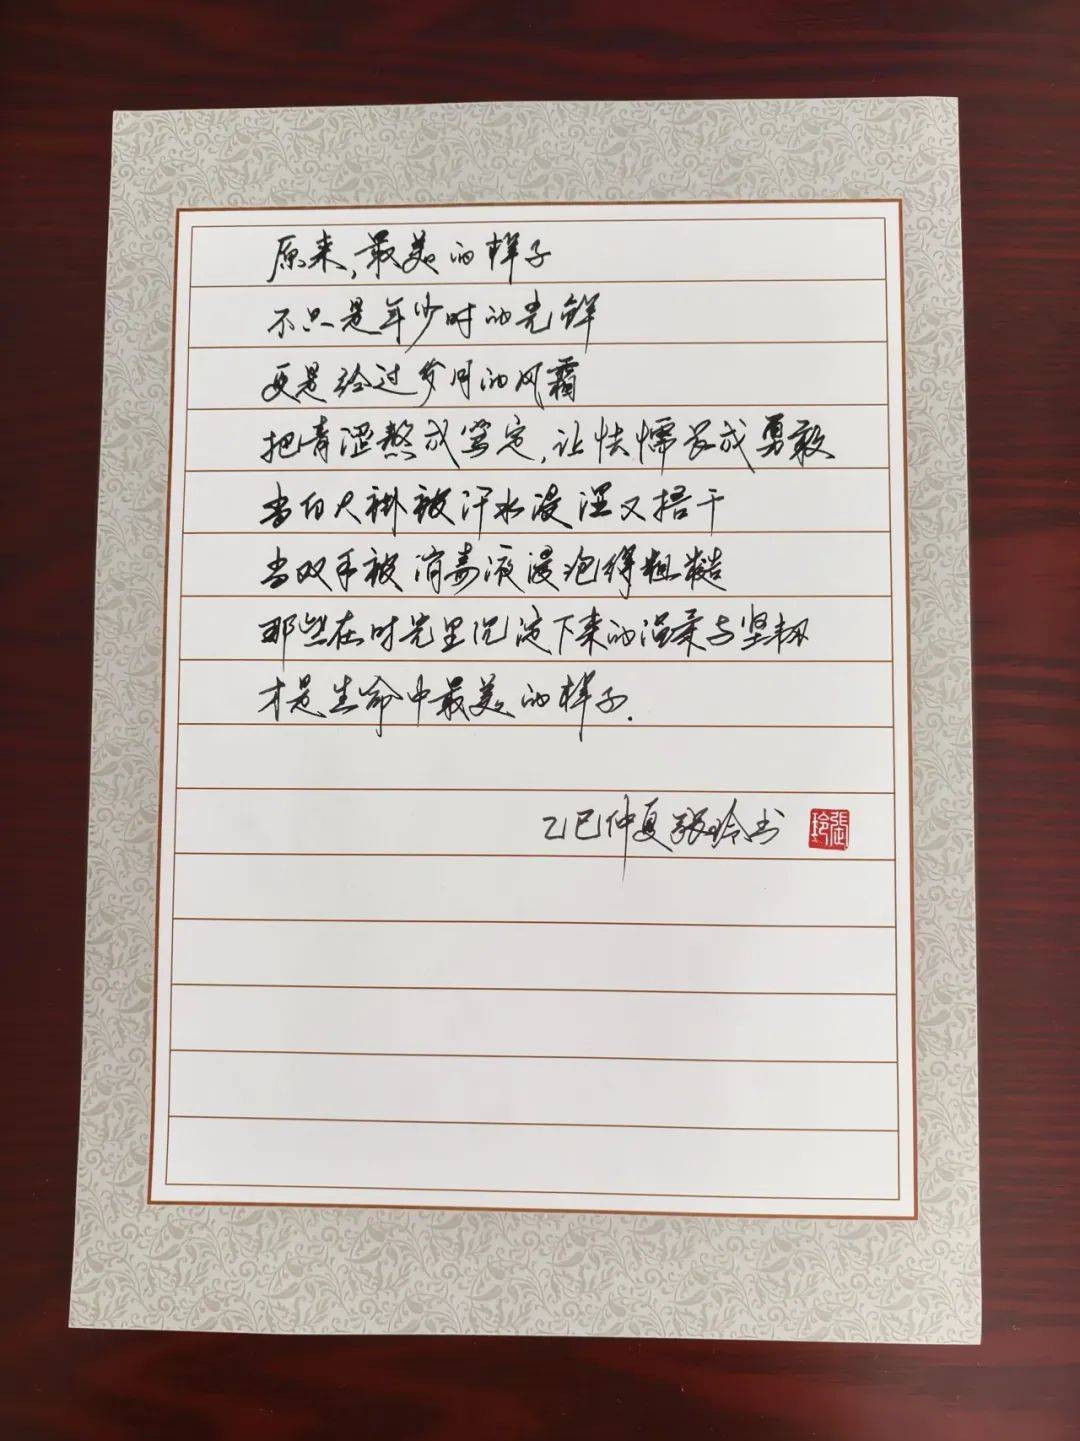 原来,最美的样子
不只是年少时的光鲜
更是经过岁月的风霜
把青涩熬成笃定,让怯懦长成勇敢
当白大褂被汗水浸湿又捂干
当双手被消毒液浸泡得粗糙
那些在时光里沉淀下来的温柔与坚韧
才是生命中最美的样子.
乙巳仲夏张玲书
張玲